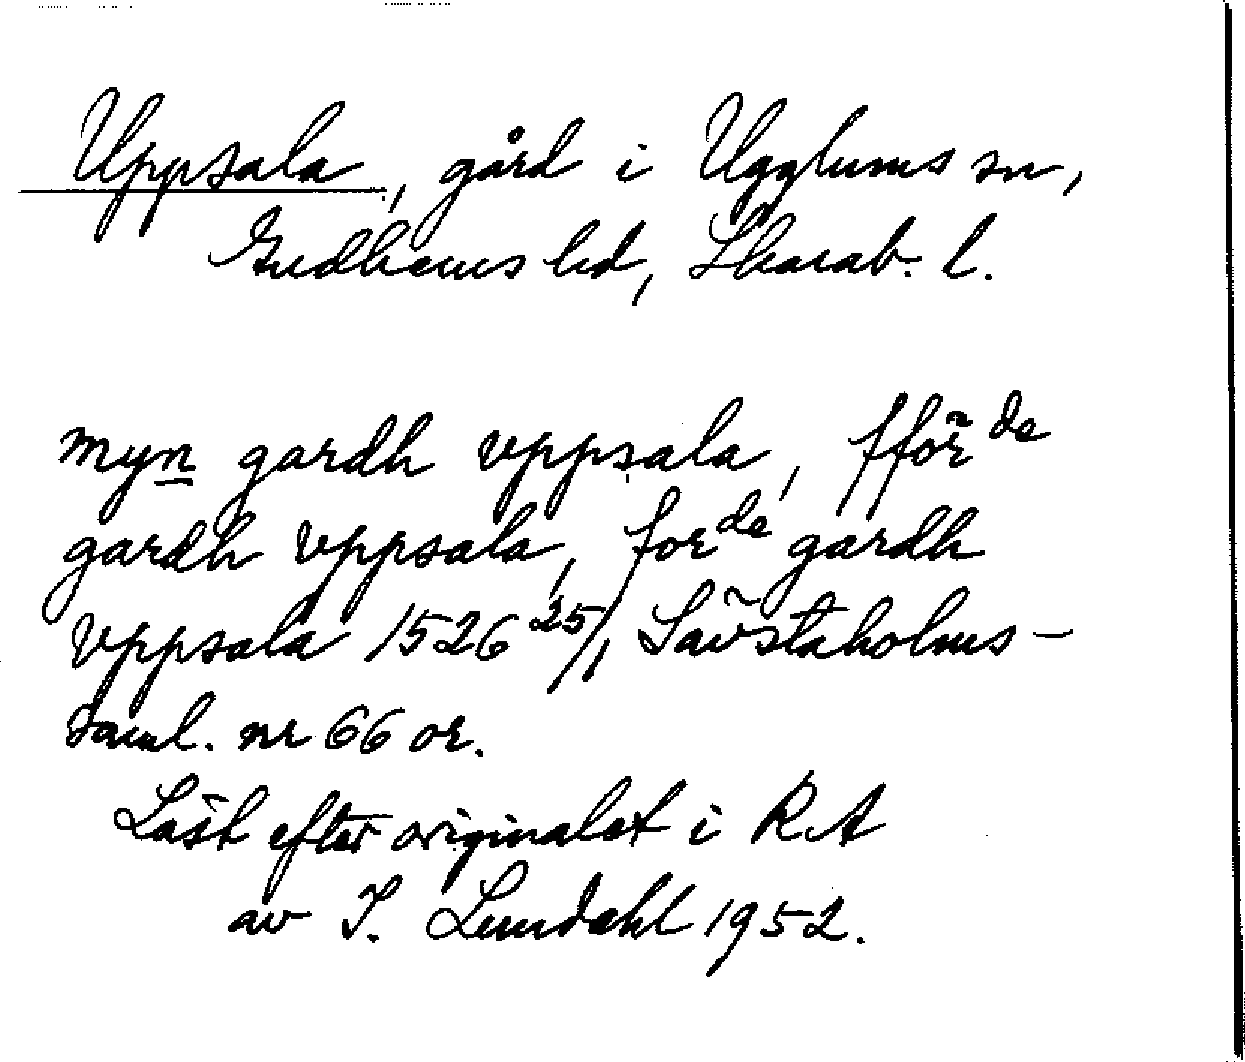 Uppsala, gård i Ugglums sn,
Gudhems hd, Skarab. l.
myn gardh vppsala, fför de
gardh vppsala, for de gardh
vppsala 1526 25/1, Sävstaholms-
saml. nr 66 or.
Läst efter originalet i RA
av I. Lundahl 1952.